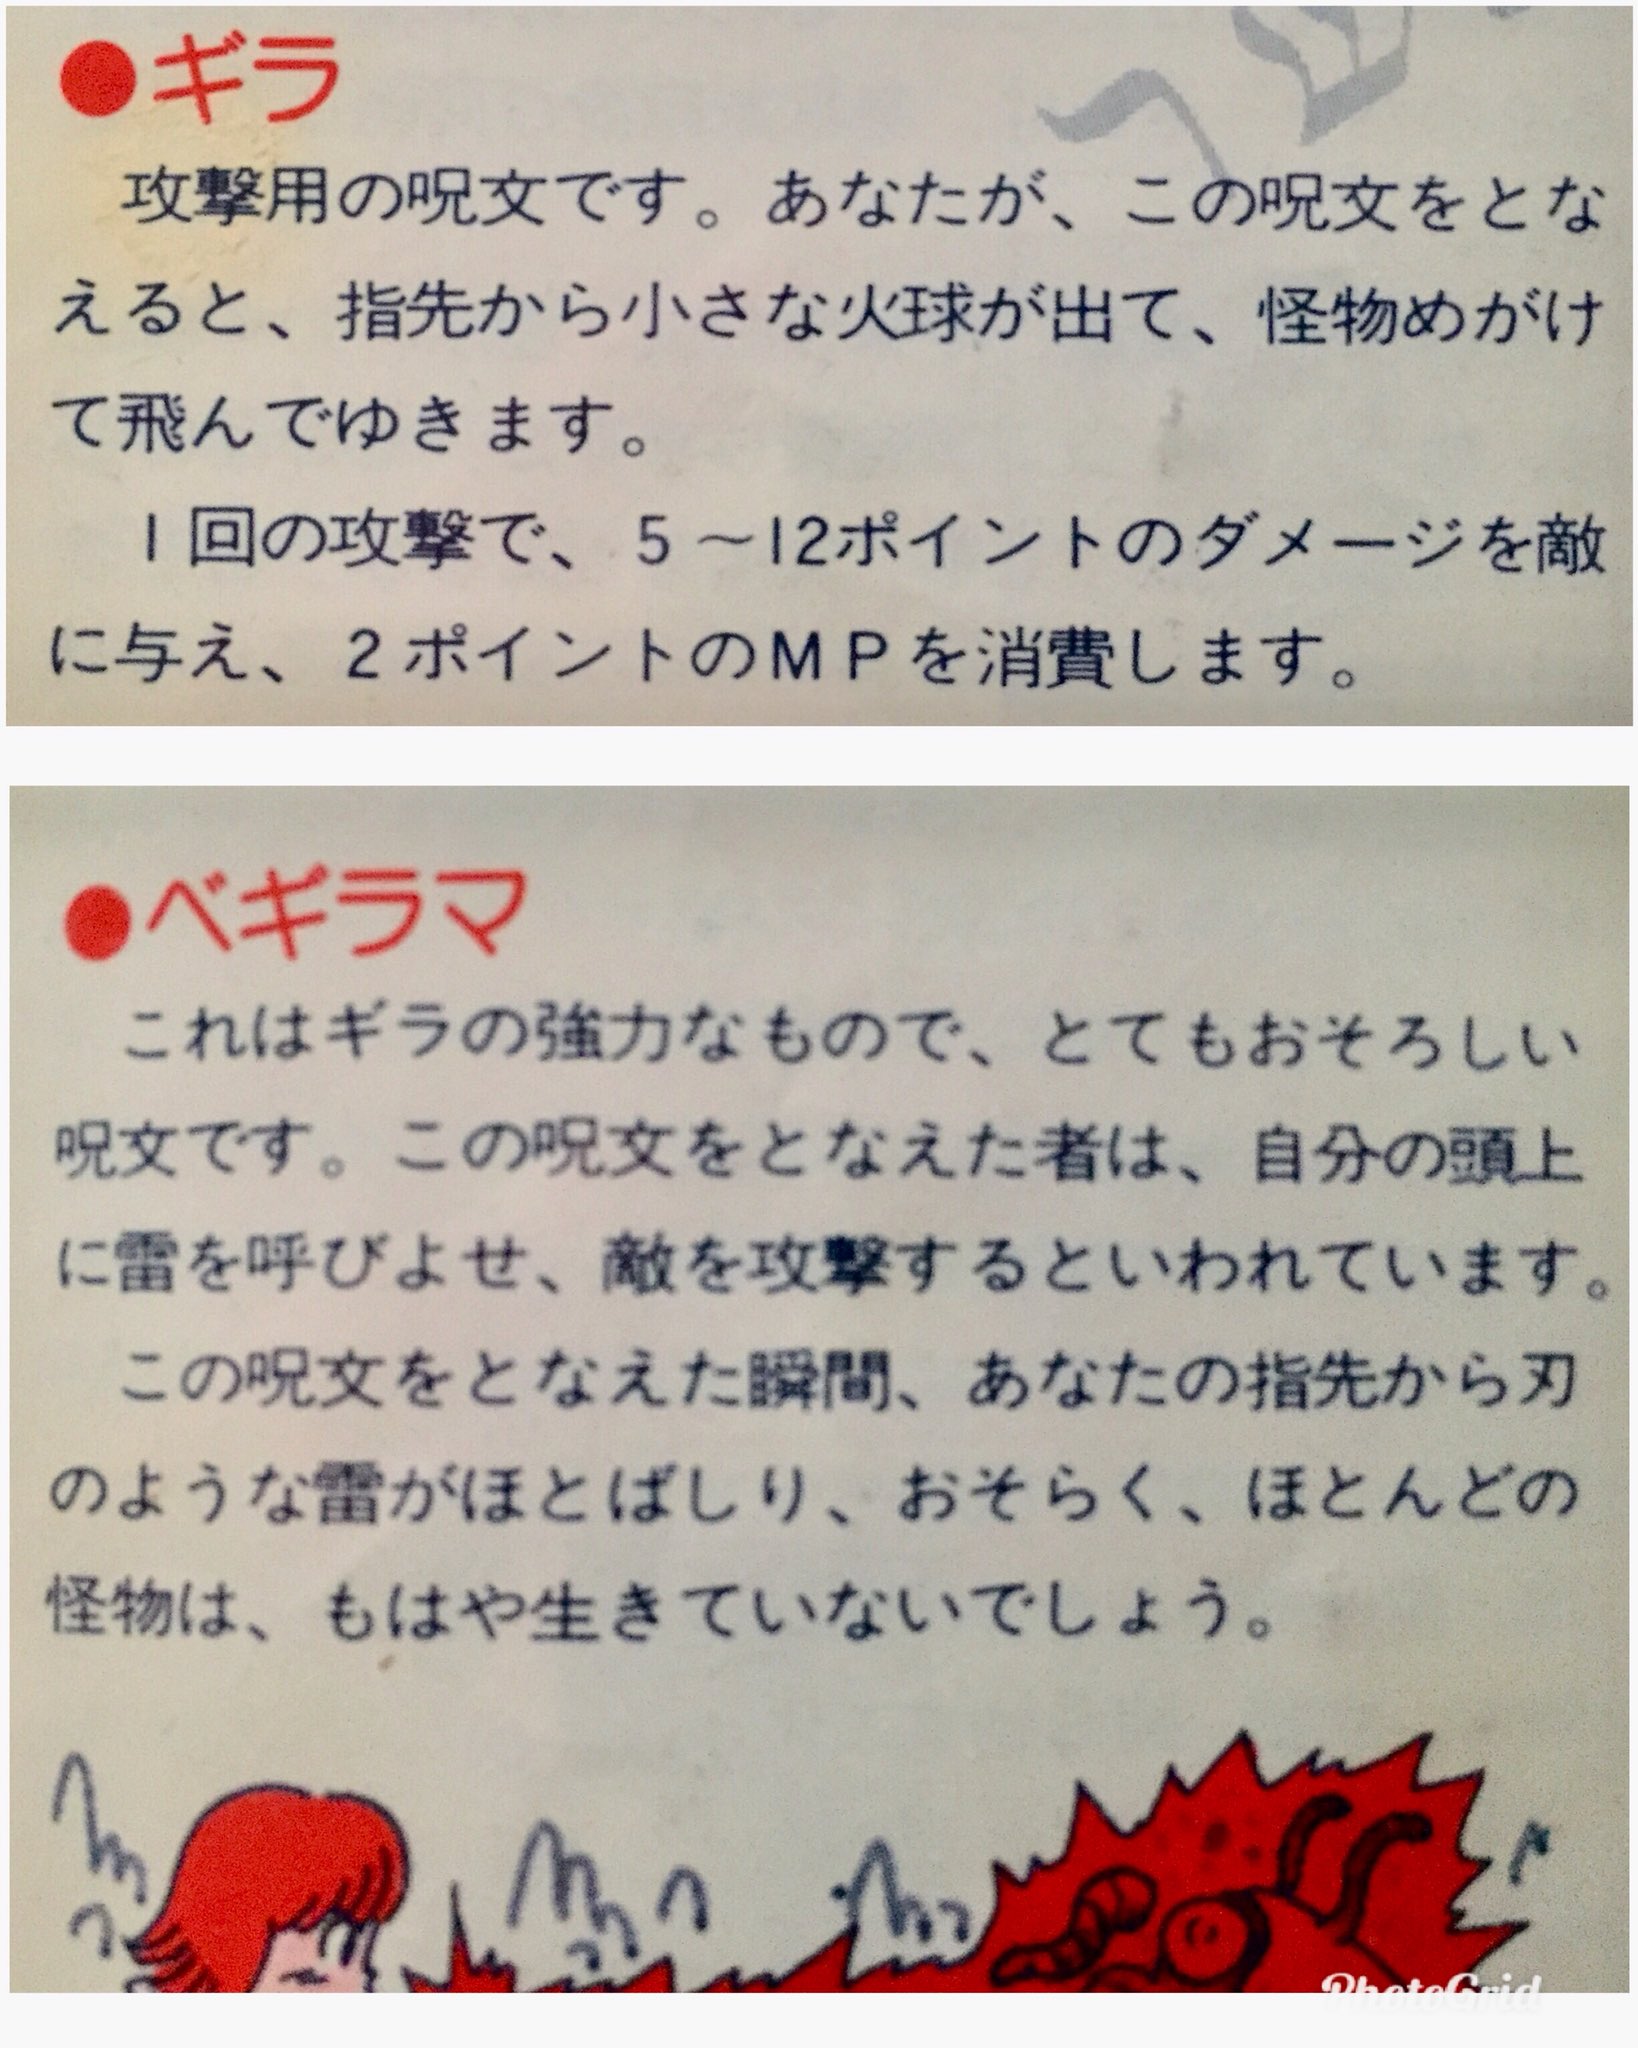 ●ギラ
攻撃用の呪文です。あなたが、この呪文をとな
えると、指先から小さな火球が出て、怪物めがけ
て飛んでゆきます。
1回の攻撃で、5～12ポイントのダメージを敵
に与え、2ポイントのMPを消費します。
●ベギラマ
これはギラの強力なもので、とてもおそろしい
呪文です。この呪文をとなえた者は、自分の頭上
に雷を呼びよせ、敵を攻撃するといわれています。
この呪文をとなえた瞬間、あなたの指先から刃
のような雷がほとばしり、おそらく、ほとんどの
怪物は、もはや生きていないでしょう。
PhotoGrid